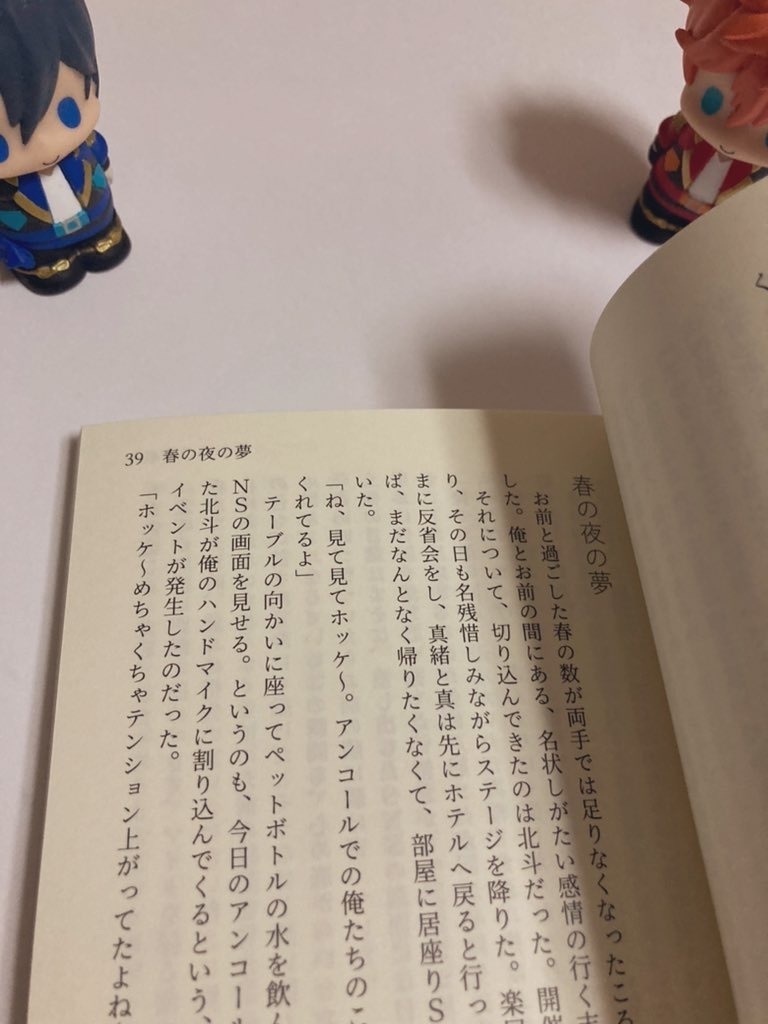 39 春の夜の夢
春の夜の夢
お前と過ごした春の数が両手では足りなくなったころ
した。俺とお前の間にある、名状しがたい感情の行く
それについて、切り込んできたのは北斗だった。開催
り、その日も名残惜しみながらステージを降りた。楽屋
まに反省会をし、真緒と真は先にホテルへ戻ると行っ
ば、まだなんとなく帰りたくなくて、部屋に居座りS
いた。
「ね、見て見てホッケ〜。アンコールでの俺たちのこ
くれてるよ」
テーブルの向かいに座ってペットボトルの水を飲ん
NSの画面を見せる。というのも、今日のアンコール
た北斗が俺のハンドマイクに割り込んでくるという、
イベントが発生したのだった。
「ホッケ〜めちゃくちゃテンション上がってたよね